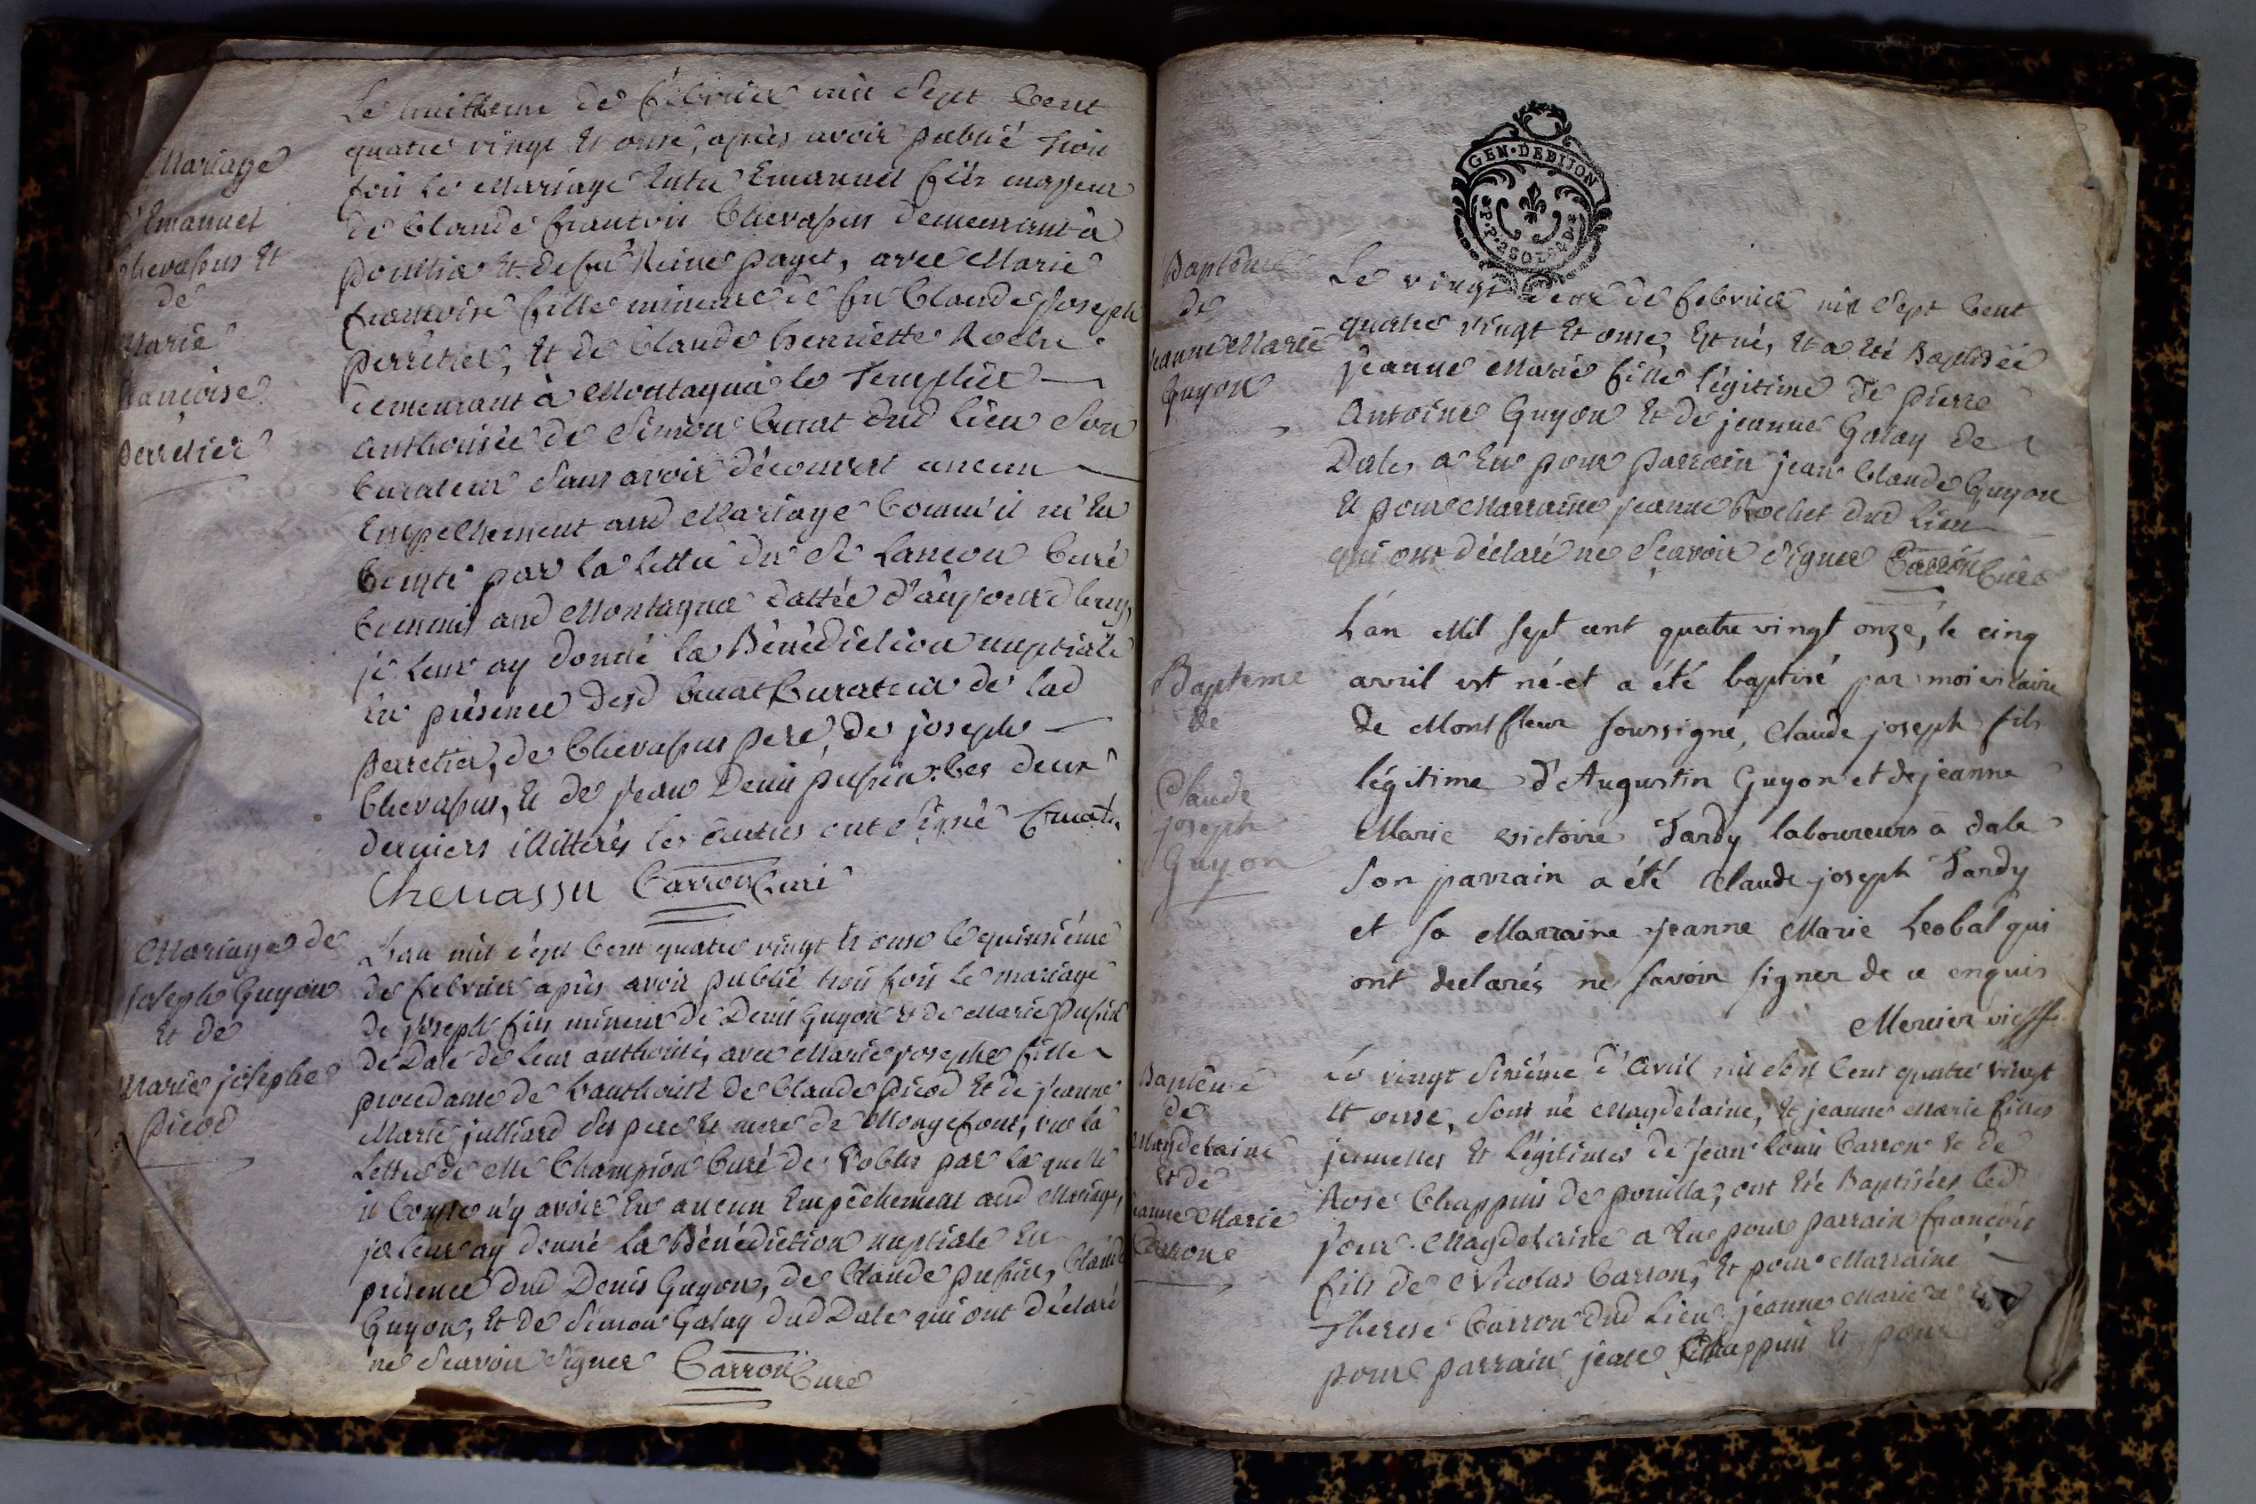 Mariage
d'Emanuel
Chevassus Et
de
Marie
françoise
Perretier
Le huitieme de fevrier mil Sept Cent
quatre vingt Et onse, après avoir publié trois
fois le Mariage Entre Emanuel fils majeur
de Claude francois Chevassus demeurant à
poulla Et de fu Reine paget, avec Marie
francoise fille mineure de fu Claude Joseph
perretier, Et de Claude henriette Roche
demeurant à Montagna le Templier
authorisée de Simon Cruat dud Lieu Son
Curateur Sans avoir découvert aucun
Empechement aud Mariage Comm'il m'En
Compte par la lettre du Sr Lancon Curé
Commis aud Montagna dattée d'aujourd'huy,
je leur ay donné la Bénédiction nuptiale
en présence desd Cruat Curateur de lad
perretier, de Chevassus pere, de joseph
Chevassus, Et de jean Denis pusin. Ces deux
derniers illitterés les autres ont Signé Cruat
Chevassu Carron Curé
Mariage de
Joseph Guyon
Et de
Marie josephe
picod
L'an mil sept Cent quatre vingt Et onse le quinsiéme
de fevrier après avoir publié trois fois le mariage
de Joseph fils mineur de Denis Guyon Et de Marie pusin
de Dale de leur authorité, avec Marie josephe fille
procedante de l'authorité de Claude picod Et de jeanne
Marie julliard Ses pere Et mere de Mongefont, vue la
Lettre de Mr Champion Curé de Vobles par la quelle
il Conste n'y avoir Eu aucun Empêchement aud Mariage,
je leur ay donné la Bénédiction nuptiale En
présence dud Denis Guyon, de Claude pusin, Claude
Guyon, Et de Simon Galay dud Dale qui ont déclaré
ne Scavoir Signer Carron Curé
GEN·DE DIJON
P·P·2 SOLS
Baptême
de
jeanne Marie
Guyon
Le vingt deux de febvrier mil Sept Cent
quatre vingt Et onse, Est né, Et a Eté Baptisée
jeanne Marie fille légitime de pierre
Antoine Guyon Et de jeanne Galay de
Dale, a Eu pour parrain jean Claude Guyon
Et pour Marraine jeanne Rochet dud Lieu
qui ont déclaré ne Sçavoir Signer Carron Curé
Bapteme
de
Claude
joseph
Guyon
L'an Mil sept cent quatre vingt onze, le cinq
avril est né et a été baptisé par moi vicaire
de Montfleur soussigné, Claude joseph fils
légitime d'Augustin Guyon et de jeanne
Marie victoire Tardy laboureurs à dale
Son parrain a été Claude joseph Tardy
et sa Marraine jeanne Marie Leobal qui
ont declarés ne savoir signer de ce enquis
Mercier vic
Baptême
de
Magdelaine
Et de
jeanne Marie
Carrone
Le vingt Sixiéme d'Avril mil Sept Cent quatre vingt
Et onse, Sont né Magdelaine, Et jeanne Marie filles
jumelles Et légitimes de jean louis Carron Et de
Rose Chappuis de pouilla, ont Eté Baptisées led
jour. Magdelaine a Eu pour parrain francois
fils de Nicolas Carron, Et pour Marraine
Therese Carron dud Lieu. jeanne Marie a Eu
pour parrain jean Chappuis Et pour